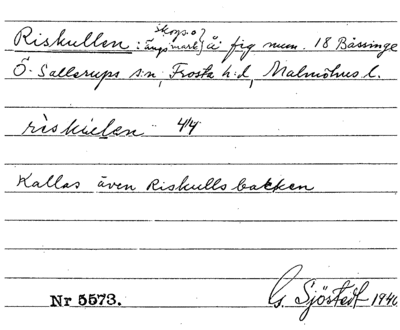 Riskullen: skogs o. ängsmark å fig num. 18 Bässinge
Ö. Sallerups sn, Frosta h:d, Malmöhus l.
44
Kallas även Riskullsbacken
Nr 5573.
G. Sjöstedt 1946